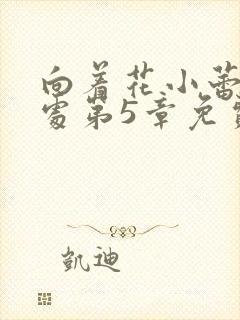 向着花小蕾
处第5章免费
凱迪